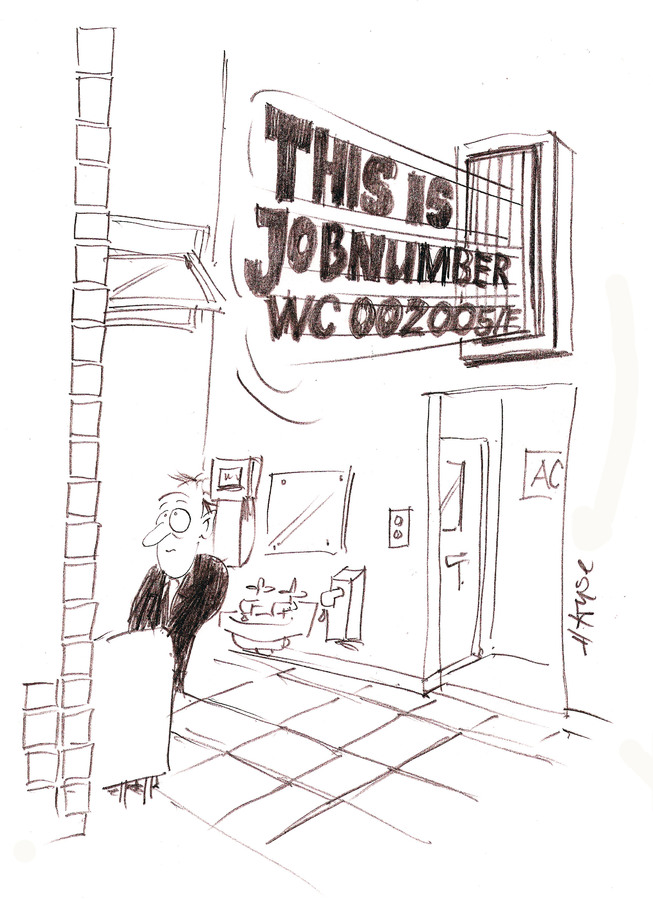 THIS IS
JOBNUMBER
WC 002005/F
AC
HAYSE